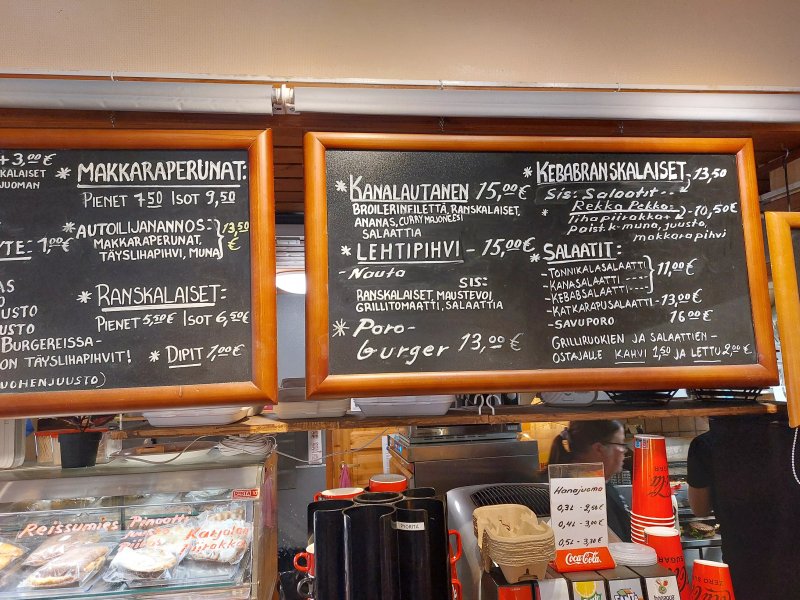 + 3,00 €
KALAISET
JUOMAN
YTE: 1,00 €
USTO
USTO
BURGEREISSA-
ON TÄYSLIHAPIHVIT!
VUOHENJUUSTO)
* MAKKARAPERUNAT:
PIENET 7,50 ISOT 9,50
* AUTOILIJANANNOS:
MAKKARAPERUNAT,
TÄYSLIHAPIHVI, MUNA
13,50
€
* RANSKALAISET:
PIENET 5,50 € ISOT 6,50 €
* DIPIT 1,00 €
* KANALAUTANEN 15,00 €
BROILERINFILETTÄ, RANSKALAISET,
ANANAS, CURRY MAJONEESI
SALAATTIA
* LEHTIPIHVI - 15,00 €
- Nauta
SIS:
RANSKALAISET, MAUSTEVOI,
GRILLITOMAATTI, SALAATTIA
* Poro-
burger 13,00 €
* KEBABRANSKALAISET - 13,50
Sis: Salaatit --
* Rekka Pekka: - 10,50 €
Lihapiirakka +
paist. k-muna, juusto,
makkara pihvi
* SALAATIT:
- TONNIKALASALAATTI
- KANASALAATTI - 11,00 €
- KEBABSALAATTI
- KATKARAPUSALAATTI - 13,00 €
- SAVUPORO 16,00 €
GRILLIRUOKIEN JA SALAATTIEN-
OSTAJALLE KAHVI 1,50 JA LETTU 2,00 €
Reissumies
Pinaatti
Karjalan
Piirakka
PIORITA
Hanajuoma
0,3L - 2,50 €
0,4L - 3,00 €
0,5L - 3,70 €
Coca-Cola
FANTA
ZERO SUGAR